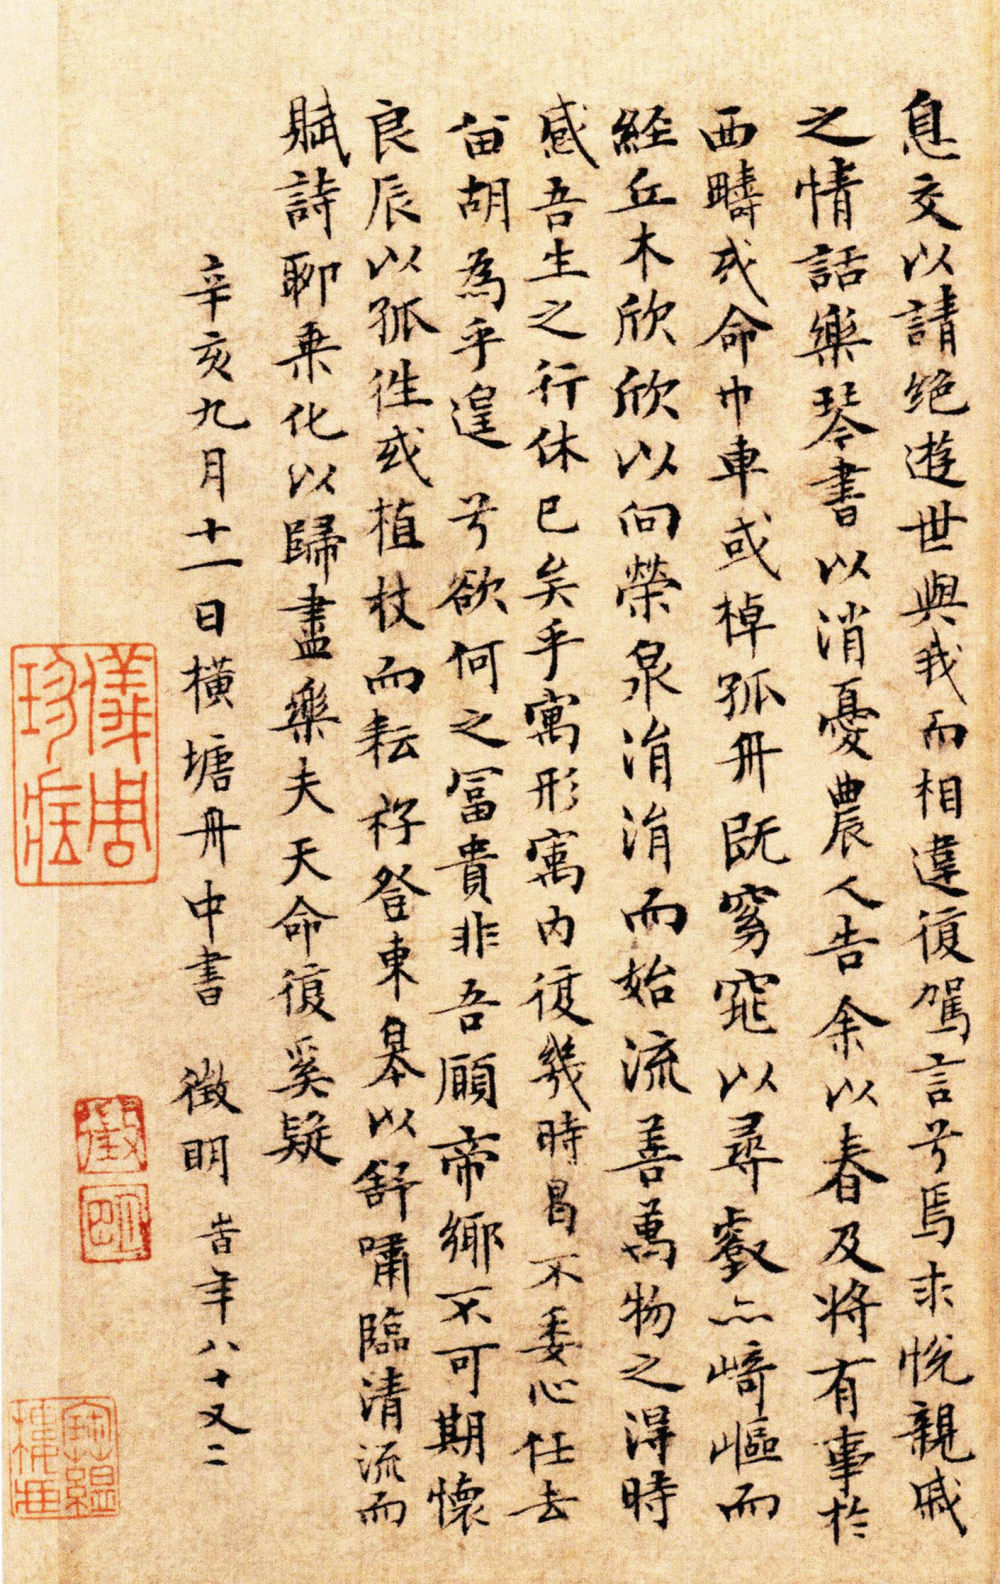 息交以請絕遊世與我而相違復駕言兮焉求悅親戚
之情話樂琴書以消憂農人告余以春及將有事於
西疇或命巾車或棹孤舟既窈窕以尋壑亦崎嶇而
經丘木欣欣以向榮泉涓涓而始流善萬物之得時
感吾生之行休已矣乎寓形寓內復幾時曷不委心任去
留胡為乎遑兮欲何之冨貴非吾願帝鄉不可期懷
良辰以孤往或植杖而耘耔登東皋以舒嘯臨清流而
賦詩聊乘化以歸盡樂夫天命復奚疑
辛亥九月十一日橫塘舟中書 徵明 旹年八十又二
徵
明
儀周
珍藏